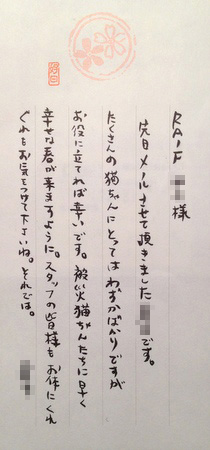 RAIF 様
先日メールさせて頂きました です。
たくさんの猫ちゃんにとってはわずかばかりですが
お役に立てれば幸いです。被災猫ちゃんたちに早く
幸せな春が来ますように。スタッフの皆様もお体にくれ
ぐれもお気をつけて下さいね。それでは。